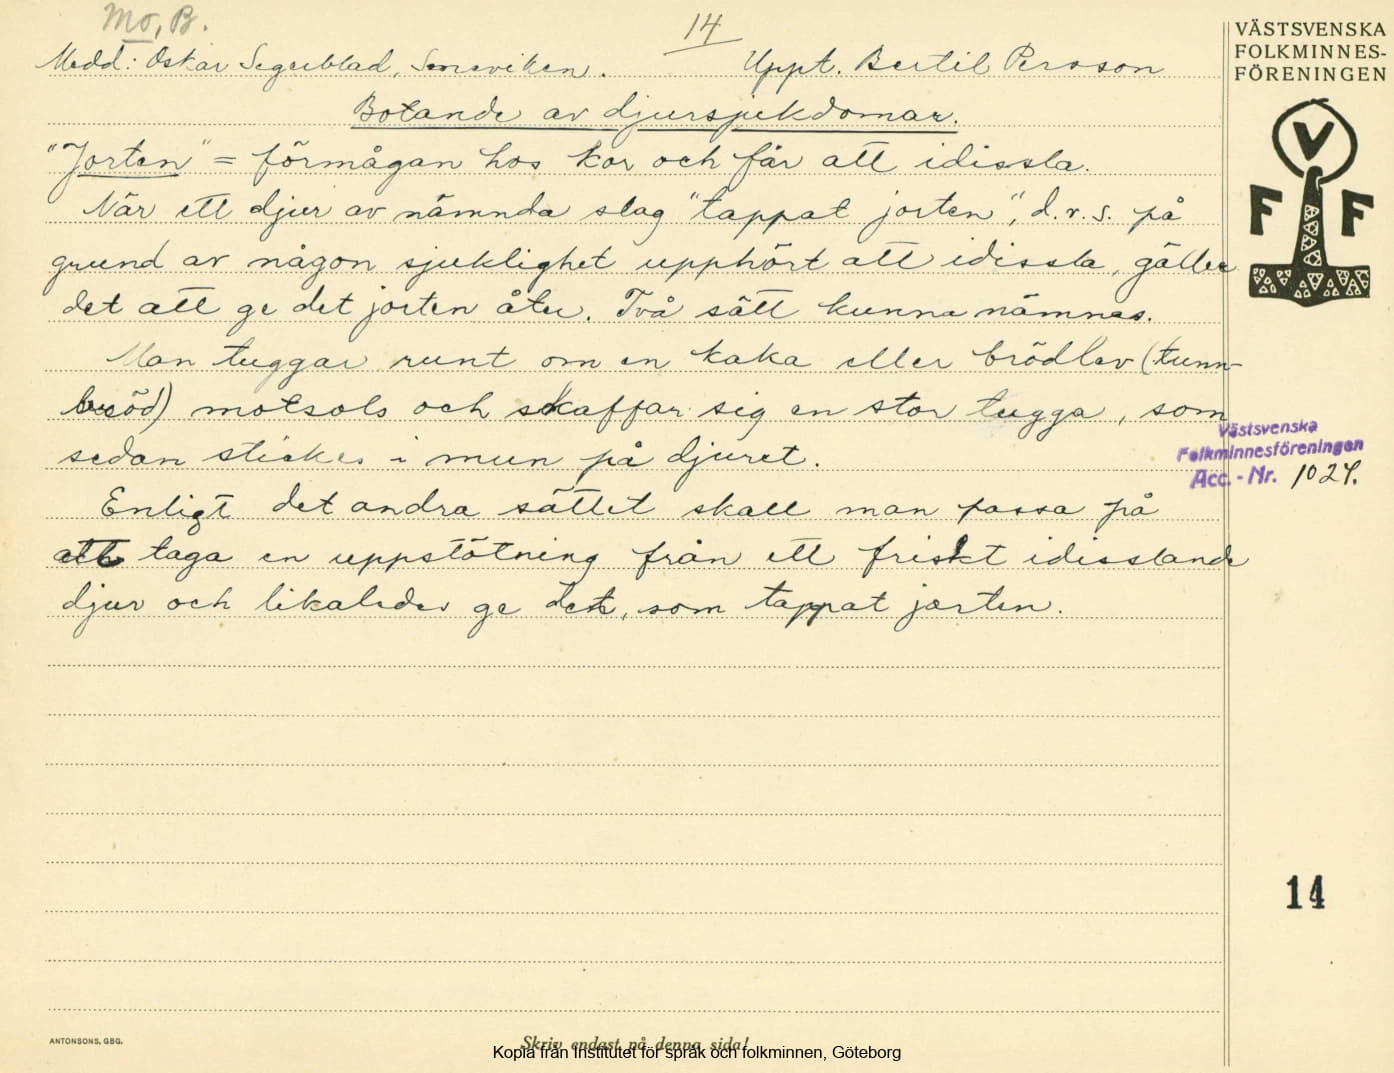 Mo, B.
14
Medd: Oskar Segerblad, Senneviken. Uppt. Bertil Persson
Botande av djursjukdomar.
"Jorten" = förmågan hos kor och får att idissla.
När ett djur av nämnda slag "tappat jorten", d.v.s. på
grund av någon sjuklighet upphört att idissla, gäller
det att ge det jorten åter. Två sätt kunna nämnas.
Man tuggar runt om en kaka eller brödlev (tunn-
bröd) motsols och skaffar sig en stor tugga, som
sedan stickes i mun på djuret.
Enligt det andra sättet skall man passa på
att taga en uppstötning från ett friskt idisslande
djur och likaledes ge det, som tappat jorten.
VÄSTSVENSKA
FOLKMINNES-
FÖRENINGEN
V
F F
Västsvenska
Folkminnesföreningen
Acc.-Nr. 1024.
14
ANTONSONS, GBG.
Skriv endast på denna sida!
Kopia från Institutet för språk och folkminnen, Göteborg